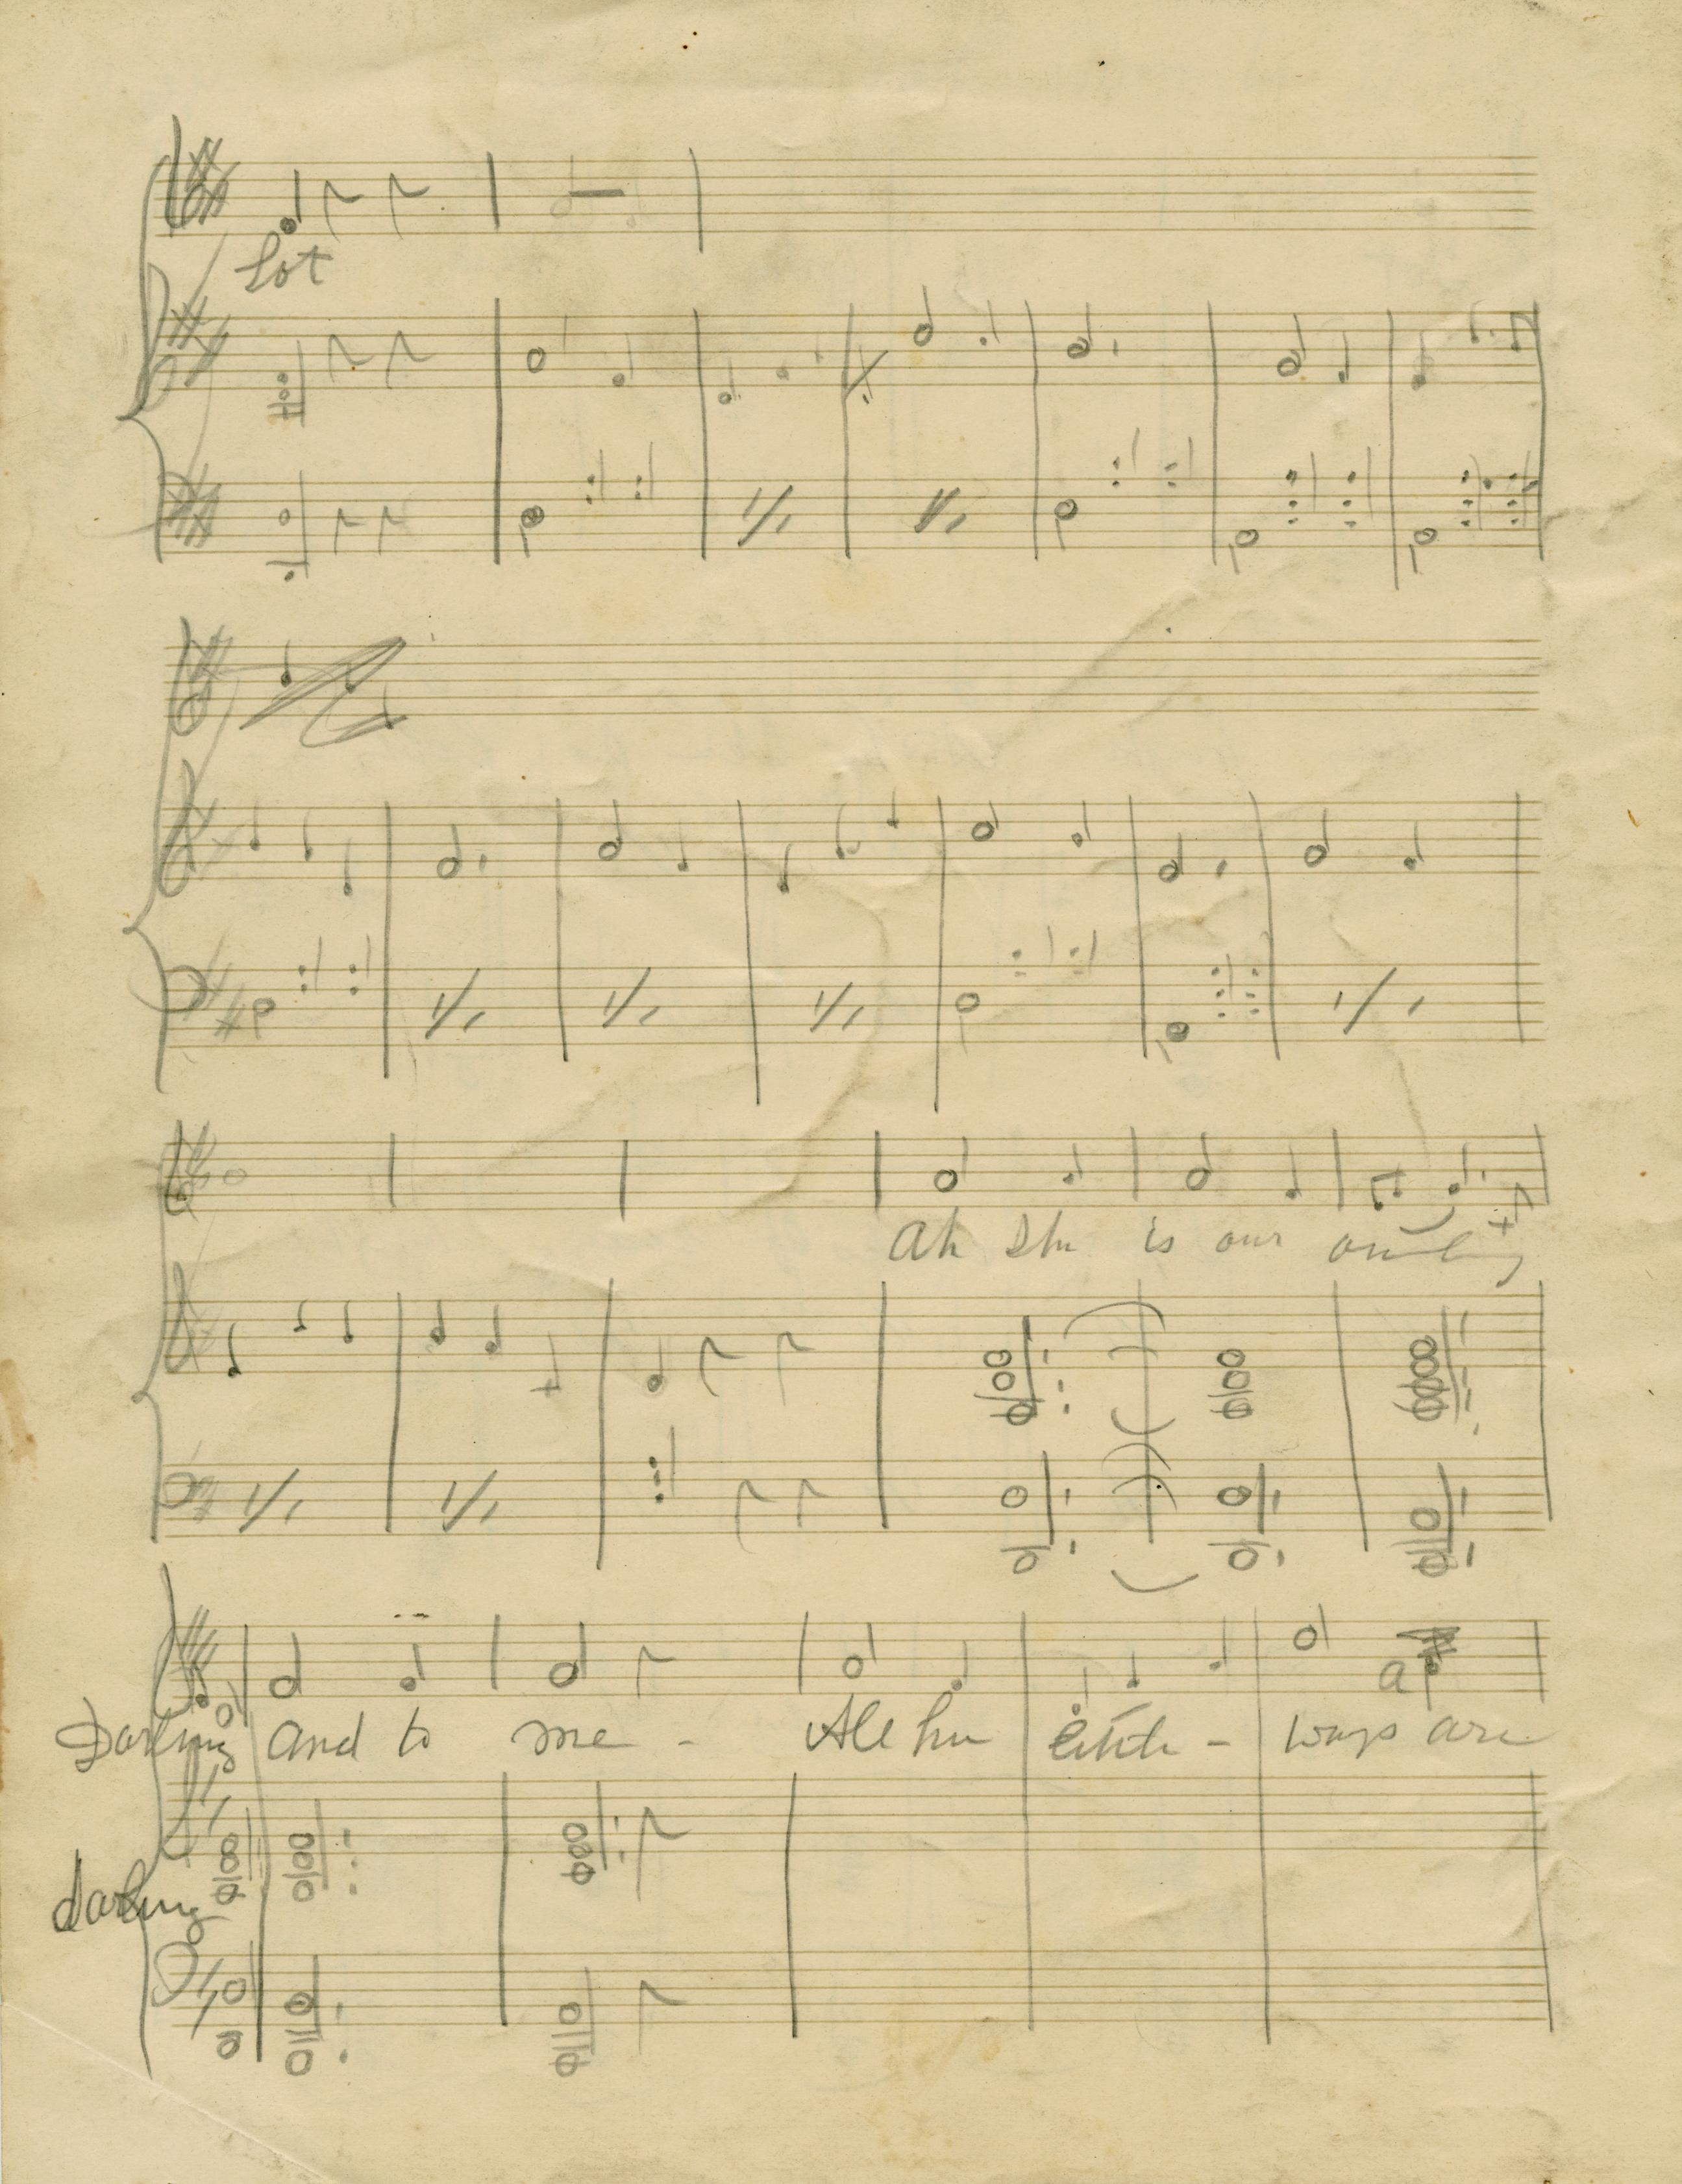 lot
Ah She is our only
Darling and to me - All her little - ways are
a
darling